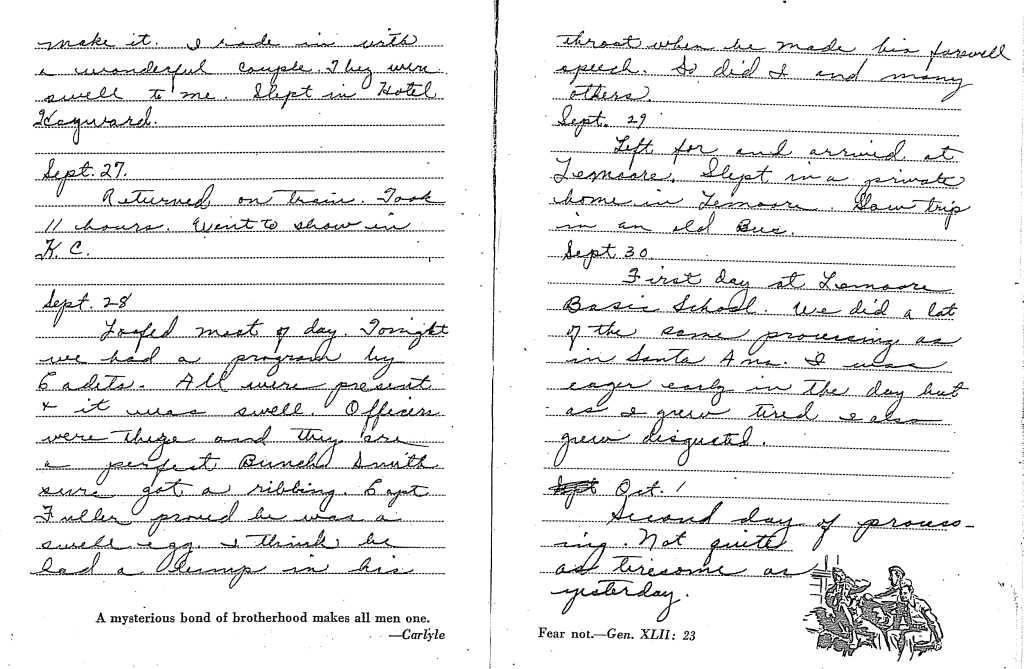 make it. I rode in with
a wonderful couple. They were
swell to me. Slept in Hotel
Hayward.
Sept. 27.
Returned on train. Took
11 hours. Went to show in
K. C.
Sept. 28
Loafed most of day. Tonight
we had a program by
Cadets. All were present
+ it was swell. Officers
were there and they are
a perfect Bunch. Smith
sure got a ribbing. Capt
Fuller proved he was a
swell egg. I think he
had a lump in his
A mysterious bond of brotherhood makes all men one.
—Carlyle
throat when he made his farewell
speech. So did I and many
others.
Sept. 29
Left for and arrived at
Lemoore. Slept in a private
home in Lemoore. Slow trip
in an old Bus.
Sept 30
First day at Lemoore
Basic School. We did a lot
of the same processing as
in Santa Ana. I was
eager early in the day but
as I grew tired I also
grew disgusted.
Sept Oct. 1
Second day of process-
ing. Not quite
as tiresome as
yesterday.
Fear not.—Gen. XLII: 23